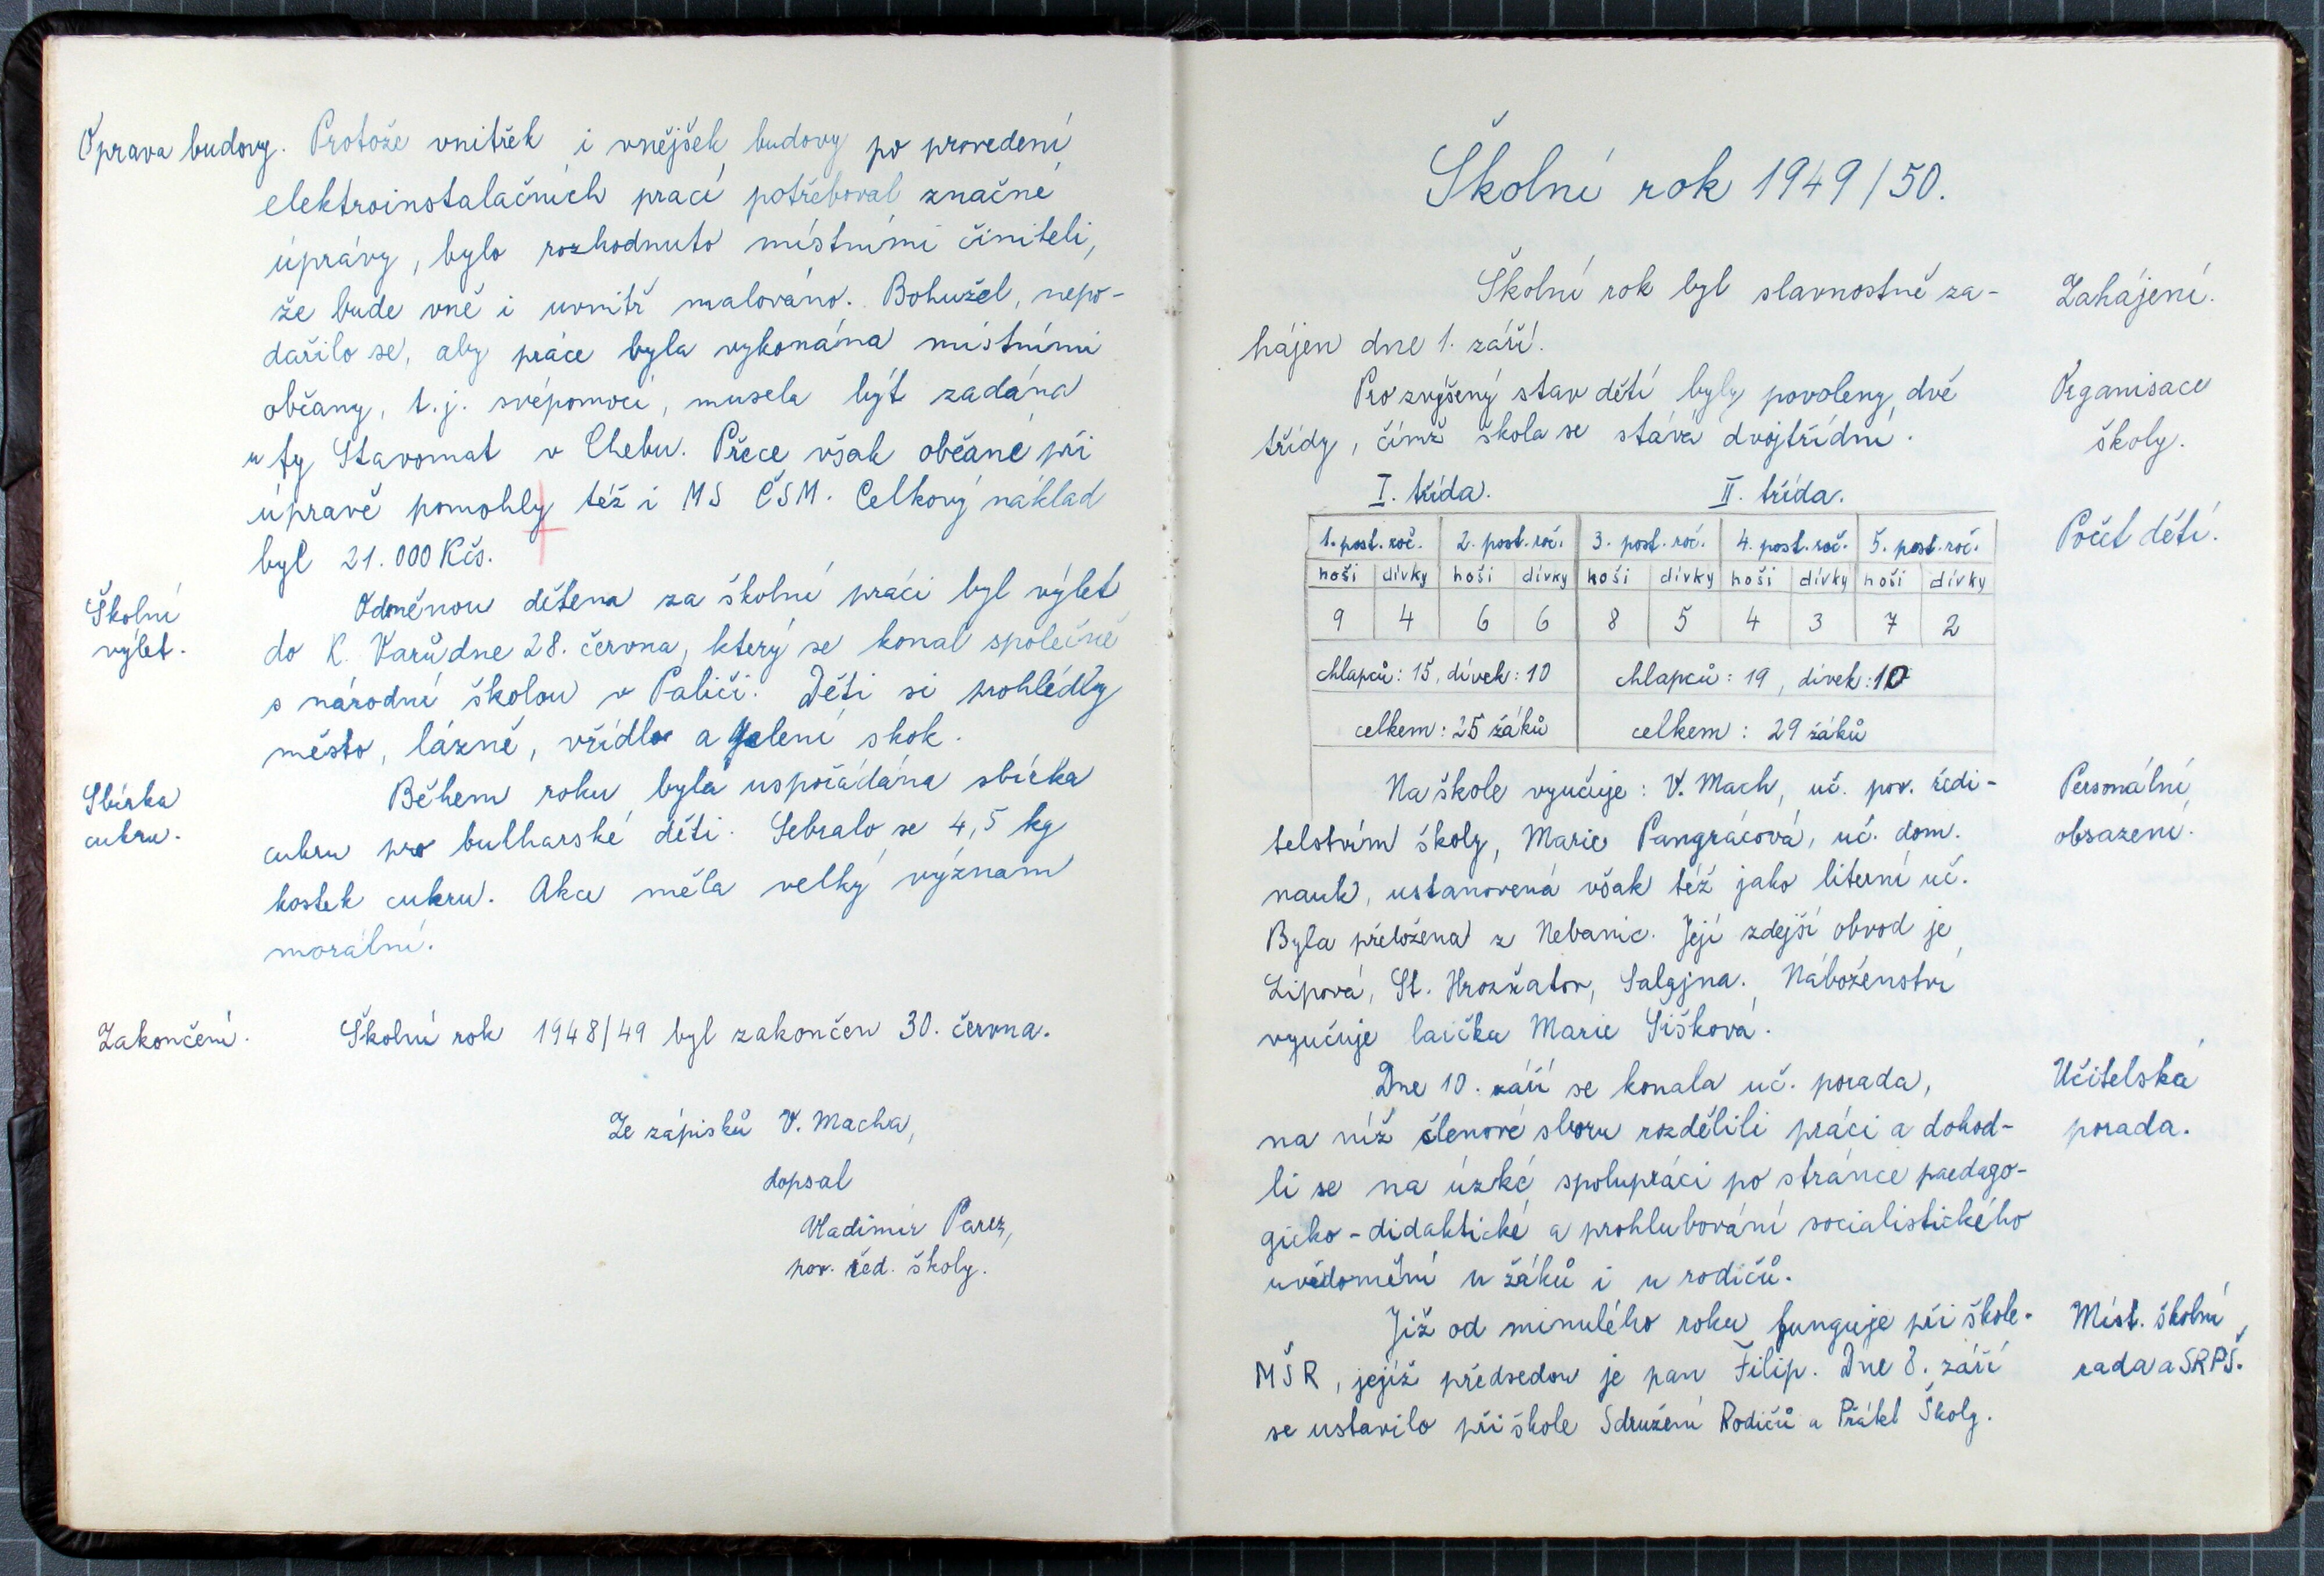 Oprava budovy. Protože vnitřek i vnějšek budovy po provedení
elektroinstalačních prací potřeboval značné
úprávy, bylo rozhodnuto místními činiteli,
že bude vně i uvnitř malováno. Bohužel, nepo-
dařilo se, aby práce byla vykonána místními
občany, t.j. svépomocí, musela být zadána
u fy Stavomat v Chebu. Přece však občané při
úpravě pomohly též i MS ČSM. Celkový náklad
byl 21.000 Kčs.
Školní
výlet.
Odměnou dětem za školní práci byl výlet
do K. Varů dne 28. června, který se konal společně
s národní školou v Paliči. Děti si prohlédly
město, lázně, vřídlo a Jelení skok.
Sbírka
cukru.
Během roku byla uspořádána sbírka
cukru pro bulharské děti. Sebralo se 4,5 kg
kostek cukru. Akce měla velký význam
morální.
Zakončení. Školní rok 1948/49 byl zakončen 30. června.
Ze zápisků V. Macha,
dopsal
Vladimír Parez,
pov. řed. školy.
Školní rok 1949/50.
Školní rok byl slavnostně za- Zahájení.
hájen dne 1. září.
Pro zvýšený stav dětí byly povoleny dvě Organisace
třídy, čímž škola se stává dvojtřídní. školy.
I. třída. II. třída.
Počet dětí.
1. post. roč. 2. post. roč. 3. post. roč. 4. post. roč. 5. post. roč.
hoši dívky hoši dívky hoši dívky hoši dívky hoši dívky
9 4 6 6 8 5 4 3 7 2
chlapců: 15, dívek: 10 chlapců: 19, dívek: 10
celkem: 25 žáků celkem: 29 žáků
Na škole vyučuje: V. Mach, uč. pov. ředi- Personální
telstvím školy, Marie Pangrácová, uč. dom. obsazení.
nauk, ustanovená však též jako literní uč.
Byla přeložena z Nebanic. Její zdejší obvod je
Lipová, St. Hrozňatov, Salajna. Náboženství
vyučuje laička Marie Šišková.
Dne 10. září se konala uč. porada, Učitelská
na níž členové sboru rozdělili práci a dohod- porada.
li se na úzké spolupráci po stránce paedago-
gicko-didaktické a prohlubování socialistického
uvědomění u žáků i u rodičů.
Již od minulého roku funguje při škole- Míst. školní
MŠR, jejíž předsedou je pan Filip. Dne 8. září rada a SRPŠ.
se ustavilo při škole Sdružení Rodičů a Přátel Školy.